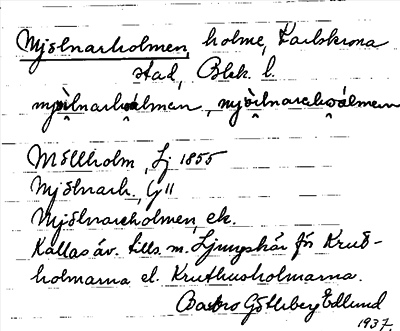 Mjölnarholmen, holme, Karlskrona
stad, Blek. l.
mjölnarhålmen, mjölnarehålmen
Möllholm, Lj 1855
Mjölnarh., GII
Mjölnareholmen, ek.
Kallas äv. tills. m. Ljungskär för Krut-
holmarna el. Kruthusholmarna.
Göthberg Edlund
1937.